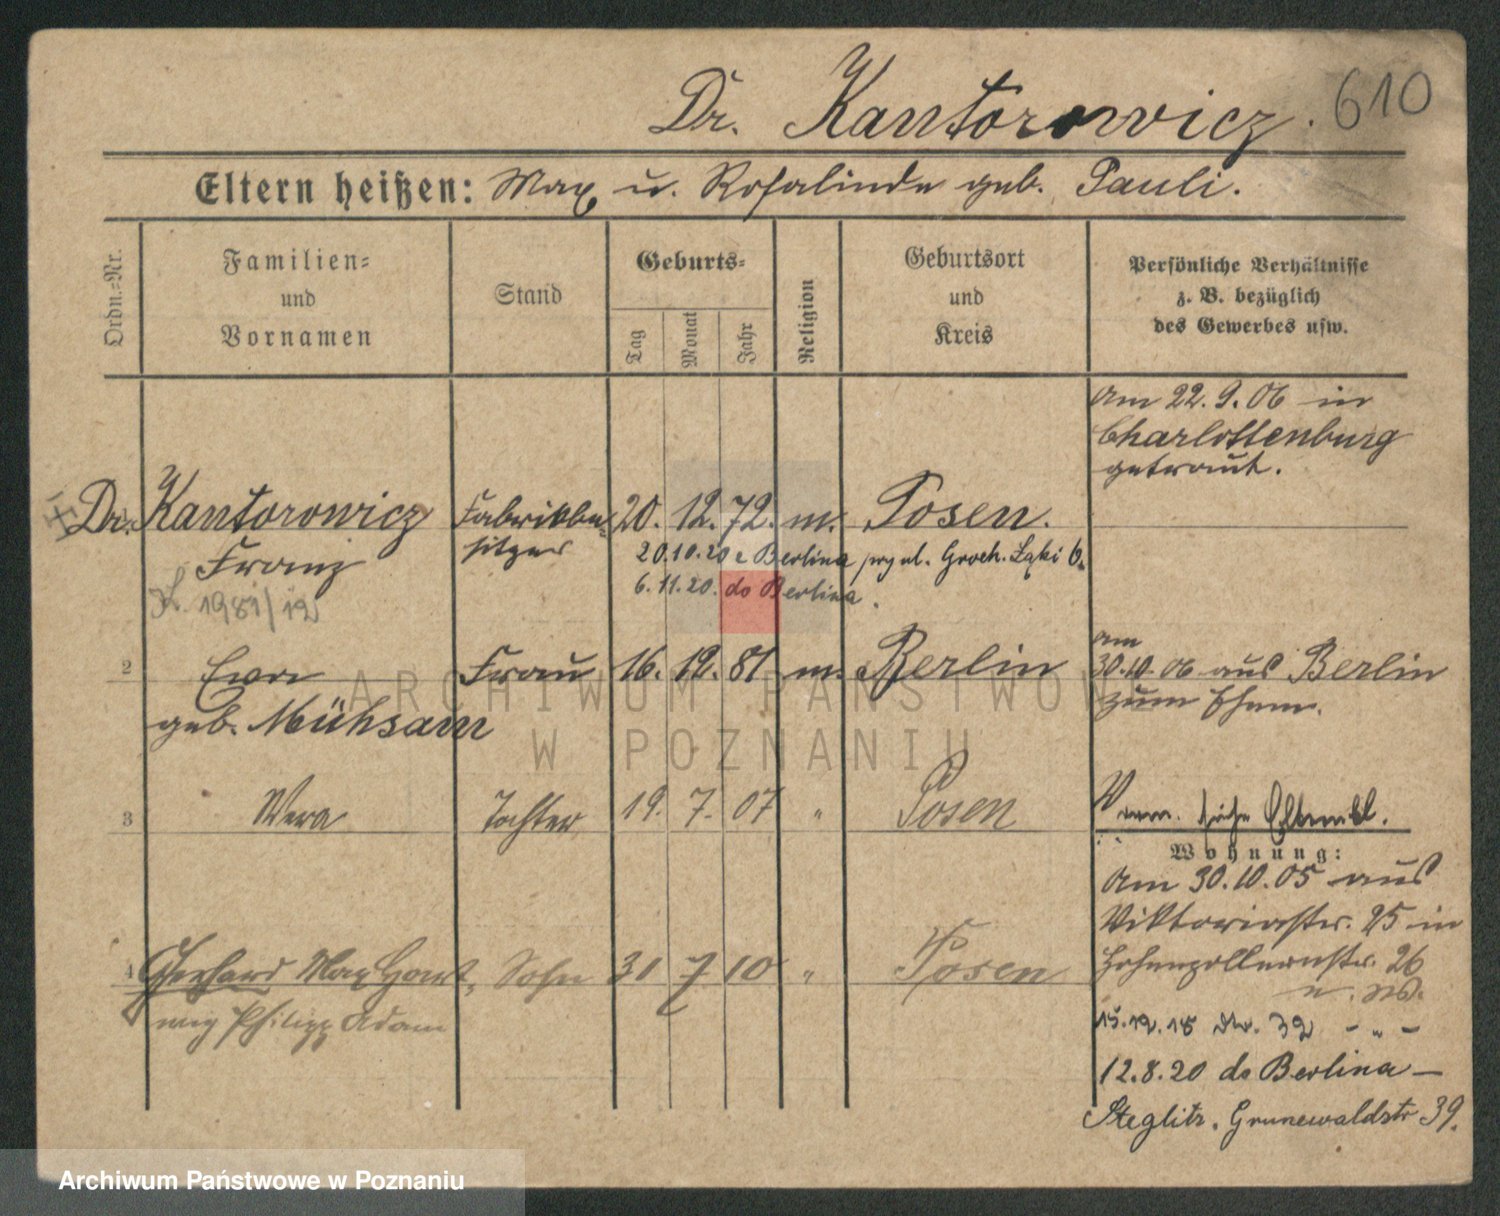 Dr. Kantorowicz. 610
Eltern heißen: Max u. Rosalinde geb. Pauli.
Ordn.-Nr.
Familien-
und
Vornamen
Stand
Geburts-
Tag
Monat
Jahr
Religion
Geburtsort
und
Kreis
Persönliche Verhältnisse
z. B. bezüglich
des Gewerbes usw.
Am 22.9.06 in
Charlottenburg
getraut.
Dr. Kantorowicz Fabrikbe- 20. 12. 72. m. Posen.
Franz sitzer 20.10.20 z Berlina przyul. Groch. Łąki 6.
1981/12 6.11.20. do Berlina.
2 Eva Frau 16. 12. 81 m. Berlin am
30.10.06 aus Berlin
geb. Mühsam zum Ehem.
3 Wera Tochter 19. 7. 07 " Posen
Verm. siehe
Wohnung:
Am 30.10.05 aus
Viktoriastr. 25 in
4 Gerhard Max Sohn 31 7 10 " Posen Hohenzollernstr. 26
Philipp Adam
15.12.18 32 - " -
12.8.20 do Berlina -
Steglitz, Grunewaldstr 39.
ARCHIWUM PAŃSTWOWE
W POZNANIU
Archiwum Państwowe w Poznaniu